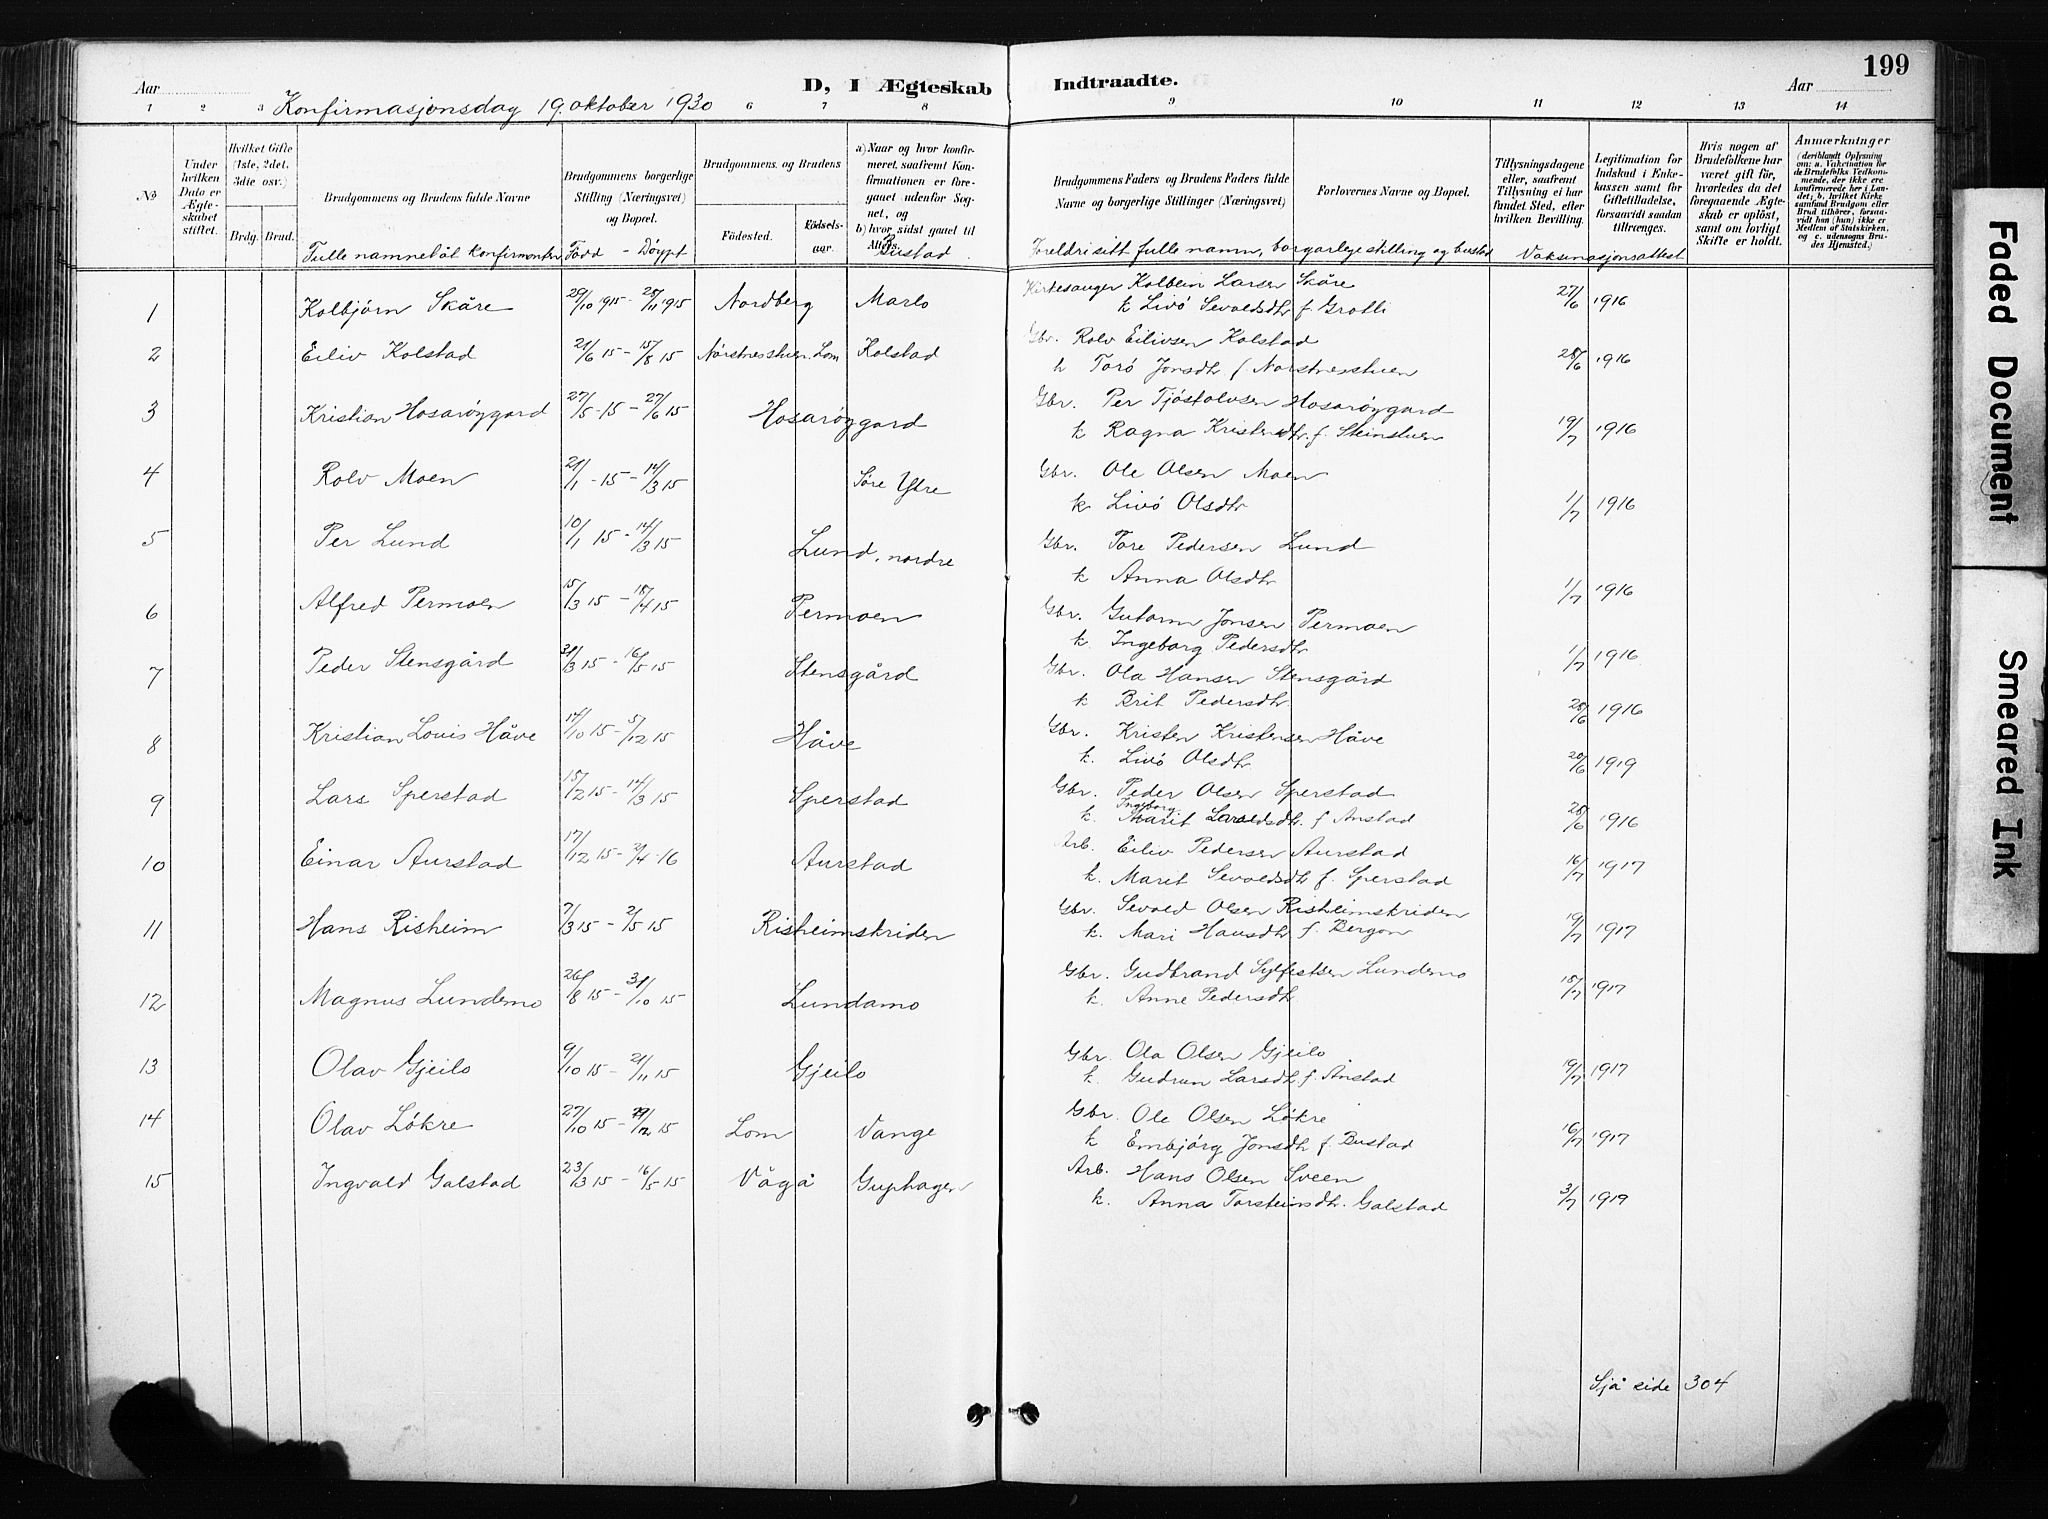 199
Aar
D, I Ægteskab
Indtraadte.
Aar
1 2 3 6 7 8 9 10 11 12 13 14
Konfirmasjonsdag 19. oktober 1930
№
Under hvilken Dato er Ægteskabet stiftet.
Hvilket Gifte (1ste, 2det, 3die osv.)
Brdg. Brud.
Brudgommens og Brudens fulde Navne
Brudgommens borgerlige Stilling (Næringsvei) og Bopæl.
Brudgommens og Brudens
Födested.
Födselsaar.
a) Naar og hvor konfirmeret, saafremt Konfirmationen er foregaaet udenfor Sognet, og
b) hvor sidst gaaet til Alters.
Brudgommens Faders og Brudens Faders fulde Navne og borgerlige Stillinger (Næringsvei)
Forlovernes Navne og Bopæl.
Tillysningsdagene eller, saafremt Tillysning ei har fundet Sted, efter hvilken Bevilling.
Legitimation for Indskud i Enkekassen samt for Giftetilladelse, forsaavidt saadan tiltrænges.
Hvis nogen af Brudefolkene har været gift før, hvorledes da det foregaaende Ægteskab er oplöst, samt om lovligt Skifte er holdt.
Anmærkninger
(deriblandt Oplysning om: a. Vakcination for de Brudefolks Vedkommende, der ikke ere konfirmerede her i Landet; b. hvilket Kirkesamfund Brudgom eller Brud tilhörer, forsaavidt han (hun) ikke er Medlem af Statskirken, og c. udensogns Brudes Hjemsted.)
Fulle namnet åt konfirmanten Fødd - Døypt Bustad
Foreldri sitt fulle namn, borgarlege stilling og bustad Vaksinasjonsattest
1 Kolbjørn Skåre 29/10 1915 - 28/11 1915 Nordberg Marlo Kirkesanger Kolbein Larsen Skåre 27/6 1916
k Livö Sevaldsdtr f. Grotli
2 Eiliv Kolstad 21/6 15 - 15/8 15 Nørstnesstuen, Lom Kolstad Gbr. Rolv Eilivsen Kolstad
Torö Jonsdtr f Norstnesstuen 28/6 1916
3 Kristian Hosarøygard 27/5 - 15 - 27/6 15 Hosarøygard Gbr. Per Tjöstolvsen Hosarøygard
k Ragna Kristensdtr. f. Steinstuen 19/7 1916
4 Rolv Moen 21/1 - 15 - 14/3 15 Søre Ytre Gbr. Ole Olsen Moen
k Livö Olsdtr 1/7 1916
5 Per Lund 10/1 15 - 14/3 15 Lund, nordre Gbr. Tore Pedersen Lund
k Anna Olsdtr 1/7 1916
6 Alfred Permoen 15/3 15 - 18/4 15 Permoen Gbr. Gutorm Jonsen Permoen
k. Ingeborg Pedersdtr 1/7 1916
7 Peder Stensgård 31/3 15 - 16/5 15 Stensgård Gbr. Ola Hansen Stensgård
k Brit Pedersdtr. 28/6 1916
8 Kristian Louis Håve 14/10 15 - 5/12 15 Håve Gbr. Kristen Kristensen Håve
k. Livö Olsdtr 20/6 1919
9 Lars Sperstad 15/12 15 - 14/3 15 Sperstad Gbr. Peder Olsen Sperstad
Ingeborg
k. Marit f Anstad 28/6 1916
10 Einar Aurstad 17/12 15 - 2/4 - 16 Aurstad Arb. Eiliv Pedersen Aurstad
k. Marit Sevaldsdtr f. Sperstad 16/7 1917
11 Hans Risheim 7/3 15 - 2/5 15 Risheimskriden Gbr. Sevald Olsen Risheimskriden
k. Mari Hansdtr f. Bergom 19/7 1917
12 Magnus Lundemo 26/8 15 - 31/10 15 Lundamo Gbr. Gudbrand Sylfestsen Lundemo
k. Anne Pedersdtr 18/7 1917
13 Olav Gjeilo 9/10 15 - 21/11 15 Gjeilo Gbr. Ola Olsen Gjeilo
k. Gudrun Larsdtr f. Anstad 19/7 1917
14 Olav Løkre 27/10 15 - 12 15 Lom Vange Gbr. Ole Olsen Løkre
k Embjørg Jonsdtr f. Bustad 16/7 1917
15 Ingvald Galstad 23/3 15 - 16/5 15 Vågå Guphagen Arb. Hans Olsen Sveen
k. Anna Torsteinsdtr. Galstad 3/7 1919
Sjå side 304
Faded Document
Smeared Ink